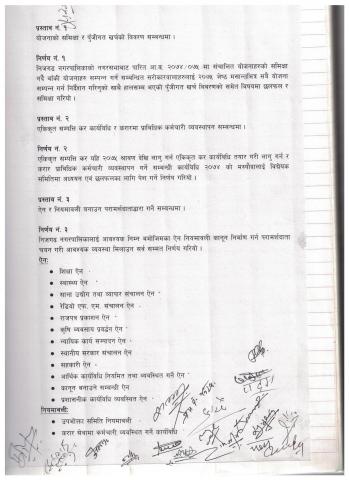 प्रस्ताव नं. १
योजनाको समिक्षा र पुँजीगत खर्चको विवरण सम्बन्धमा ।
निर्णय नं. १
निजगढ नगरपालिकाको नगरसभाबाट पारित आ.व. २०७४/०७५ मा संचालित योजनाहरुको समिक्षा
गर्दै बाँकी योजनाहरु सम्पन्न गर्न सम्बन्धित सरोकारवालाहरुलाई २०७५ जेष्ठ मसान्तभित्र सबै योजना
सम्पन्न गर्न निर्देशन गरिनुको साथै हालसम्म भएको पुँजीगत खर्च विवरणको समेत विषयमा छलफल र
समिक्षा गरियो ।
प्रस्ताव नं. २
एकिकृत सम्पत्ति कर कार्यविधि र करारमा प्राविधिक कर्मचारी व्यवस्थापन सम्बन्धमा ।
निर्णय नं. २
एकिकृत सम्पत्ति कर यहि २०७५ श्रावण देखि लागु गर्न एकिकृत कर कार्यविधि तयार गरी लागु गर्न र
करार प्राविधिक कर्मचारी व्यवस्थापन गर्ने सम्बन्धी कार्यविधि २०७४ को मस्यौदालाई विधेयक
समितिमा अध्ययन एवं छलफलका लागि पेश गर्ने निर्णय गरियो ।
प्रस्ताव नं. ३
ऐन र नियमावली बनाउन परामर्शदाताद्वारा गर्ने सम्बन्धमा ।
निर्णय नं. ३
निजगढ नगरपालिकालाई आवश्यक निम्न बमोजिमका ऐन नियमावली कानून निर्माण गर्न परामर्शदाता
चयन गरी आवश्यक व्यवस्था मिलाउन सर्व सम्मत निर्णय गरियो ।
ऐन:
• शिक्षा ऐन
• स्वास्थ्य ऐन
• साना उद्योग तथा व्यापार संचालन ऐन
• रेडियो एफ. एम. संचालन ऐन
• राजपत्र प्रकाशन ऐन
• कृषि व्यवसाय प्रवर्द्धन ऐन
• न्यायिक कार्य सम्पादन ऐन
• स्थानीय सरकार संचालन ऐन
• सहकारी ऐन
• आर्थिक कार्यविधि नियमित तथा व्यवस्थित गर्ने ऐन
• कानून बनाउने सम्बन्धी ऐन
• प्रशासकीय कार्यविधि व्यवस्थित ऐन
नियमावली:
• उपभोक्ता समिति नियमावली
• करार सेवामा कर्मचारी व्यवस्थित गर्ने कार्यविधि